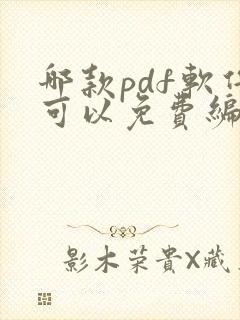 哪款pdf軟件
可以免費編
影木荣貴X藏